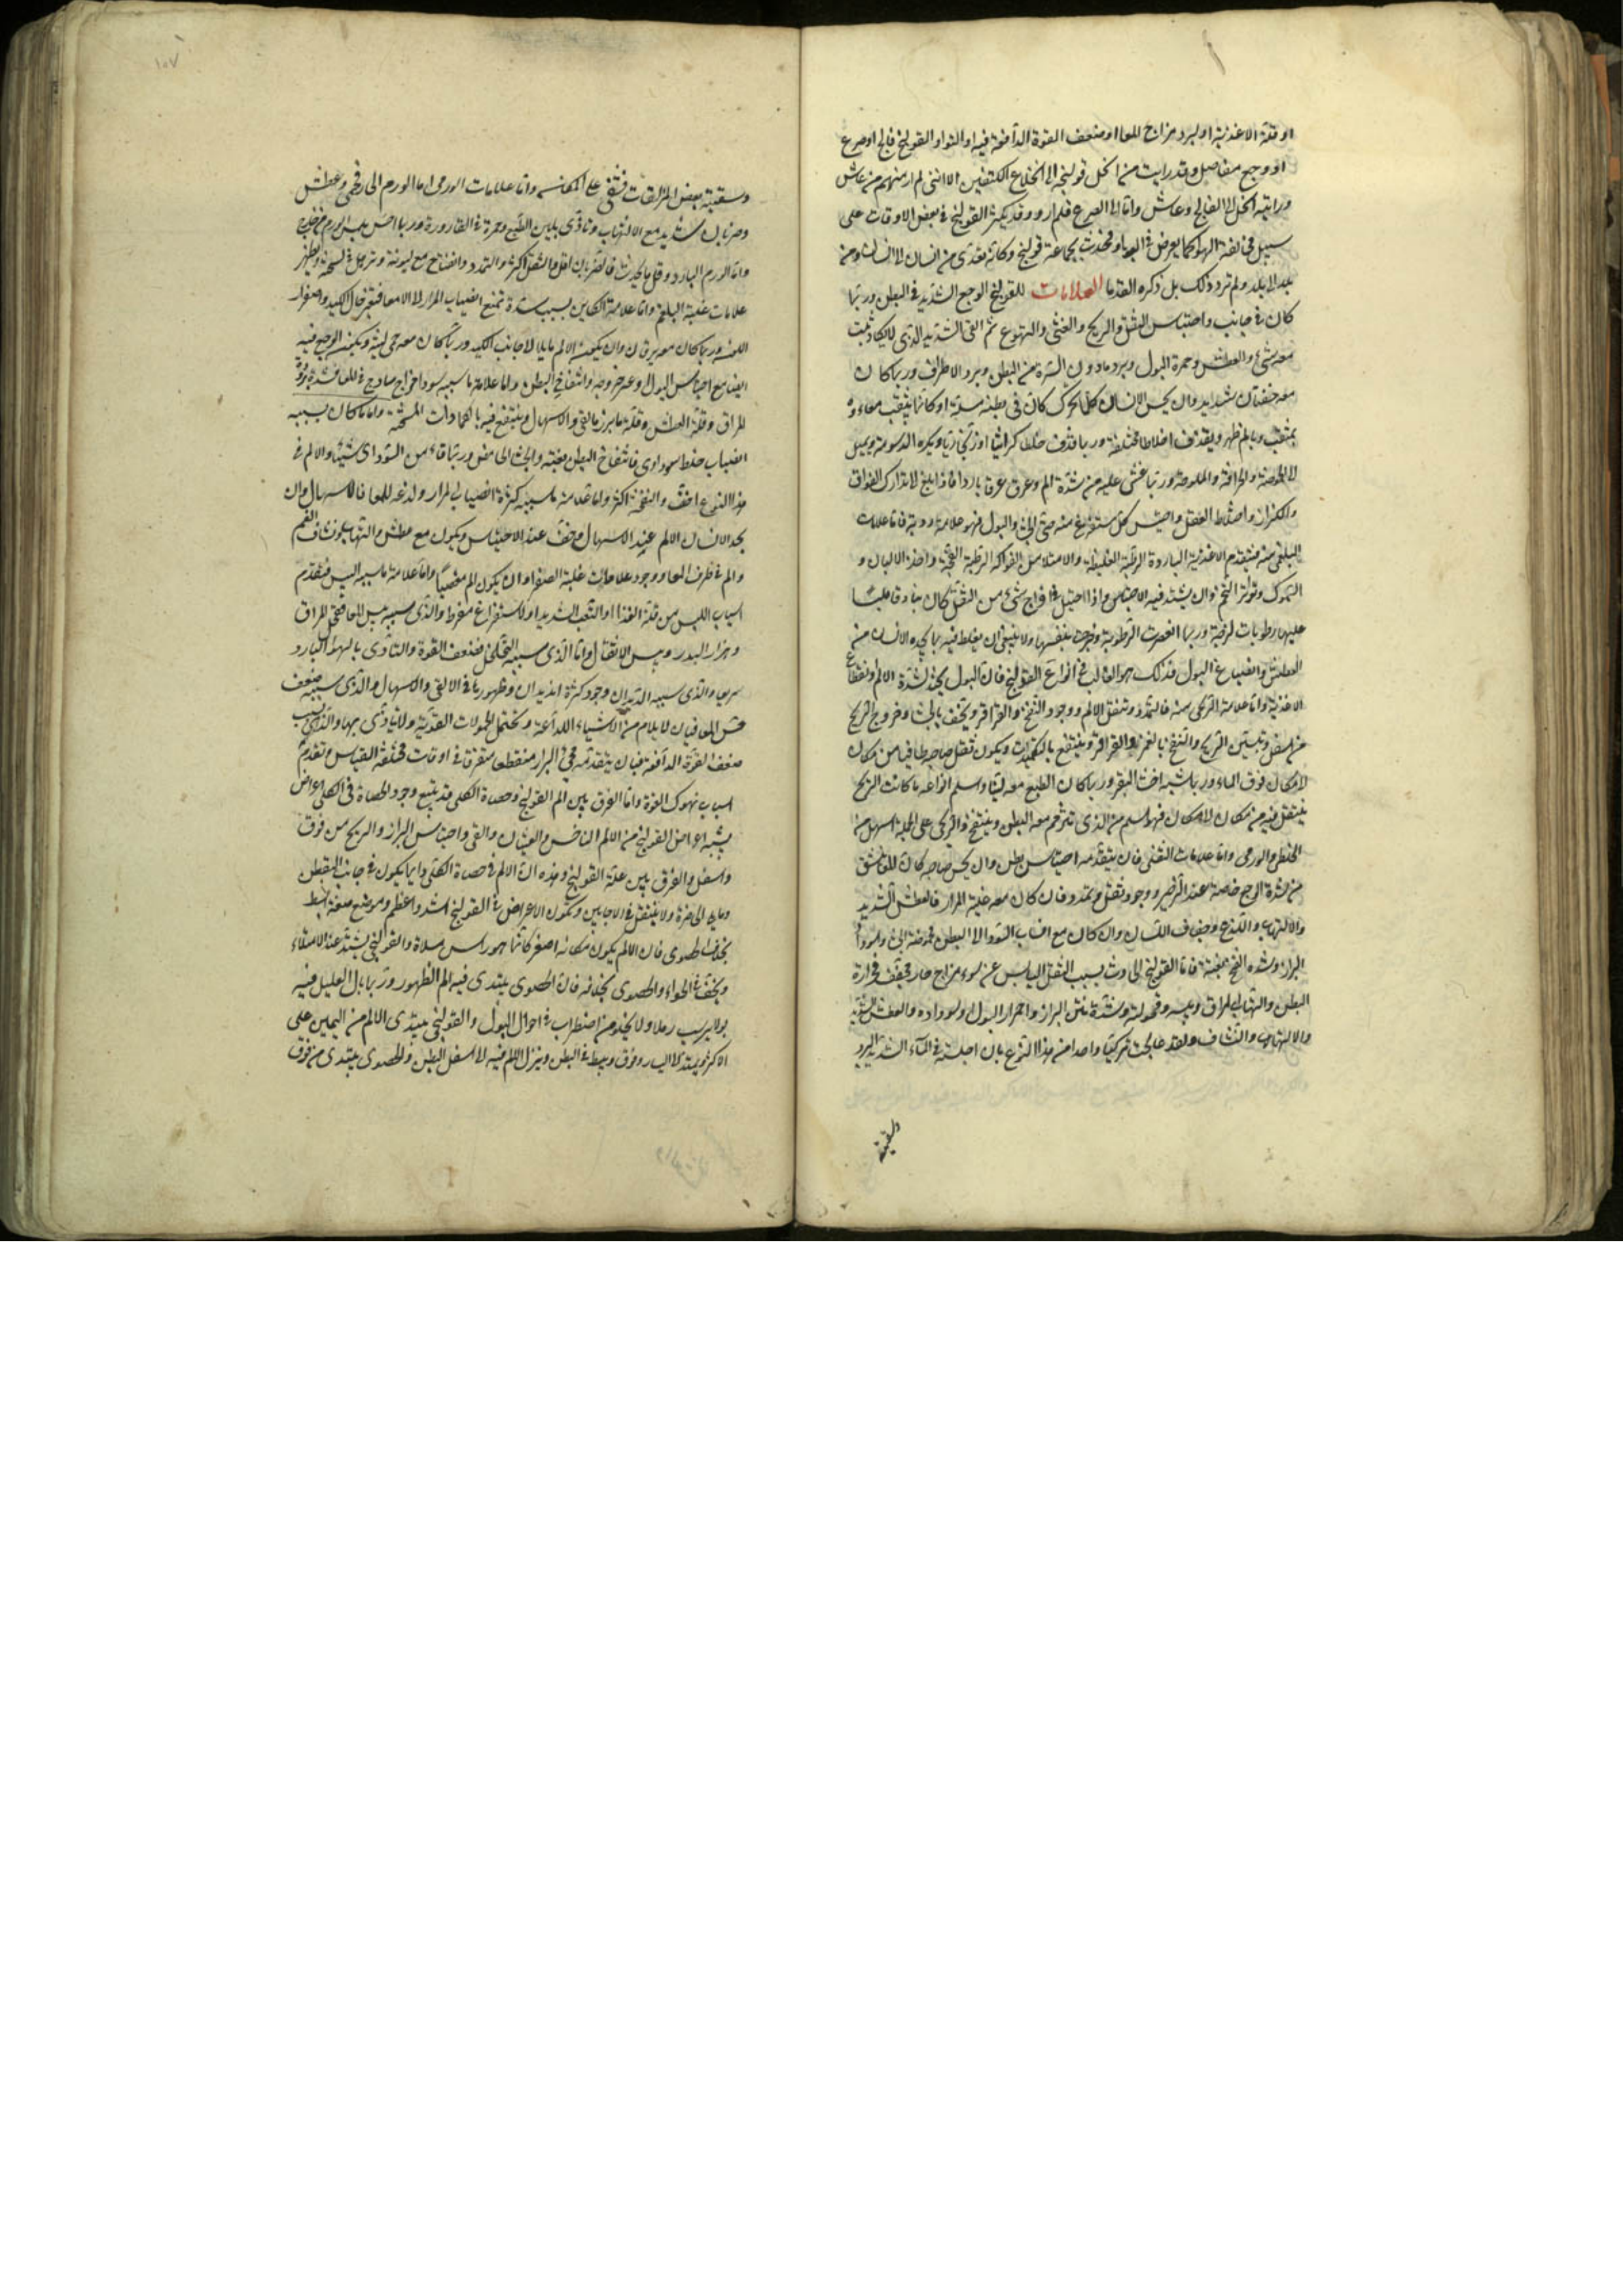 او قلة الاغذية او لبرد مزاج المعا او ضعف القوة الدافعة فيه او التواء القولنج فالج او صرع
او وجع مفاصل وقد رايت من انحل قولنجه الى انخلاع الكتفين الا انني لم ار منهم من عاش
ورايته انحل الى الفالج وعاش واما الى الصرع فلم اره وقد يكثر القولنج في بعض الاوقات على
سبيل مخالفة الهواء كما يعرض في الوباء فيحدث بجماعة قولنج وكانه تعدى من انسان الى انسان ومن
بلد الى بلد ولم نرد ذلك بل ذكره القدما العلامات للقولنج الوجع الشديد في البطن وربما
كان في جانب واحتباس الثفل والريح والغثي والتهوع ثم القي الشديد الذي لا يكاد يثبت
معه شيء والعطش وحمرة البول وبرد ما دون السرة من البطن وبرد الاطراف وربما كان
معه خفقان شديد وان يحس الانسان كلما تحرك كان في بطنه مسلة او كانما يثقب معاءه
بمثقب ويالم ظهره ويقذف اخلاطا مختلفة وربما قذف خلطا كراثيا او زنجاريا ويكره الدسومة ويميل
الى الحموضة والحرافة والملوحة وربما غشي عليه من شدة الم وعرق عرقا باردا فاذا بلغ الى تدارك الفواق
والكزاز واختلاط العقل واحتبس كل مستفرغ منه حتى الجشا والبول فهو علامة ردية فاما علامات
البلغمي منه فتقدم الاغذية الباردة الرطبة الغليظة والامتلا من الفواكه الرطبة الفجة واخذ الالبان و
السموك وتواتر التخم وان يشتد فيه الاحتباس واذا احتيل في اخراج شيء من الثفل كان بنادقا عليه
عليها رطوبات لزجة وربما انعصرت الرطوبة وخرجت بنفسها ولا ينبغي ان يغلط فيه بما يجده الانسان من
العطش وانصباغ البول فذلك هو الغالب في انواع القولنج فان البول يحتد لشدة الالم وانقطاع
الاغذية واما علامة الريحي منه فالتمدد وتنقل الالم ووجود النفخ والقراقر ويخف بالجشا وخروج الريح
من اسفل وتبين الريح والنفخ بالغمز والقراقر وينتفع بالتكميدات ويكون ثفل صاحبه طافيا من مكان
الى مكان فوق الماء وربما شبه اخثاء البقر وربما كان الطبع معه لينا واسلم انواعه ما كانت الريح
ينتقل فيه من مكان الى مكان فهو اسلم من الذي تتراكم معه البطن وينتفخ والريحي على الجملة اسهل من
الخلطي والورمي واما علامات الثفلي فان يتقدمه احتباس بطن وان يحس صاحبه كان المعا ينشق
من شدة الوجع خاصة عند الزحير ووجود ثقل وتمدد فان كان معه غلبة المرار فالعطش الشديد
والالتهاب واللذع وجفاف اللسان وان كان مع انصباب السوداء الى البطن فحموضة الجشا وسواد
البراز وشدة النفخ بغتة فاما القولنج الحادث بسبب الثفل اليابس عن سوء مزاج حار مجفف فحرارة
البطن والتهاب المراق ويبسه وقحولته وشدة نتن البراز واحمرار البول او سواده والعطش الشديد
والالتهاب والنشاف ولقد عالجت تركيا واحدا من هذا النوع بان اجلسته في الماء الشديد البرد
وسقيته
١٠٧
وسقيته بعض المزلقات فتقي على المكانـه واما علامات الورمي اما الورم الحار فحمى وعطش
وضربان شديد مع الالتهاب وتاذي بلين الطبع وحمرة في القارورة وربما احس بلمس الورم من خارج
واما الورم البارد وقل ما يحدث فالضربان اقل والثقل اكثر والتمدد وانفتاح مع ليونة وترهل في السحنة ويظهر
علامات غلبة البلغم واما علامة الكاين بسبب سدة تمنع انصباب المرار الى الامعا فتغير حال الكبد واصفرار
اللون وربما كان معه يرقان وان يكون الالم مايلا الى جانب الكبد وربما كان معه حمى لينة ويكون الوجع فيه
ايضا مع احتباس البول وعسر خروجه وانتفاخ البطن واما علامة ما سببه سوء مزاج ساذج في المعا فشدة برد
المراق وقلة العطش وقلة ما يبرز بالقي والاسهال وينتفع فيه بالكمادات المسخنة واما ما كان سببه
انصباب خلط سوداوي فانتفاخ البطن بغتة والجشا الحامض وربما قاء من السوداء شيئا والالم في
هذا النوع اخف والنفخة اكثر واما علامة ما سببه كثرة انصباب المرار ولذعه للمعا فالاسهال وان
يجد الانسان الالم عند الاسهال ويخف عند الاحتباس ويكون مع عطش والتهاب ونشاف الفم
والم في طرف المعا ووجود علامات غلبة الصفرا وان يكون الم مغصيا واما علامة ما سببه اليبس فتقدم
اسباب اليبس من قلة الغذاء او التعب الشديد او الاستفراغ مفرط والذي سببه يبس المعا فتخلى المراق
وهزال البدن ويبس الاثفال واما الذي سببه التخلخل فضعف القوة والتاذي بالهواء البارد
سريعا والذي سببه الديدان وجود كثرة الديدان وظهورها في القي والاسهال والذي سببه ضعف
حس المعا فبان لا يالم من الاشياء اللداعة ويحتمل الحمولات القوية ولا يتاذى بها والذي بسبب
ضعف القوة الدافعة فبان يتقدمه مجي البراز منقطعا متفرقا في اوقات مختلفة القياس وتقدم
اسباب نهوك القوة واما الفرق بين الم القولنج وحصاة الكلى قد يتبع وجود الحصاة في الكلى اعراض
يشبه اعراض القولنج من الالم الناخس والغثيان والقي واحتباس البراز والريح من فوق
واسفل والفرق بين علة القولنج وهذه ان الالم في حصاة الكلى دايما يكون في جانب القطن
ومايل الى ولا ينتقل في الاجابين ويكون الاعراض في القولنج اشد واعظم وموضع صفة ابسط
بخلاف الحصوي فان الالم يكون مكانه اصغر كانما هو راس مسلة والقولنجي يشتد عند الامتلاء
ويخف في الخواء والحصوي بخلافه فان الحصوي يبتدي فيه الم الظهر وربما بال العليل فيه
بولا يرسب رملا ولا يخلو من اضطراب في احوال البول والقولنجي يبتدي الالم من اليمين على
الاكثر ويمتد الى اليسار وفوق ويبسط في البطن وينزل الالم فيه الى اسفل البطن والحصوي يبتدي من فوق